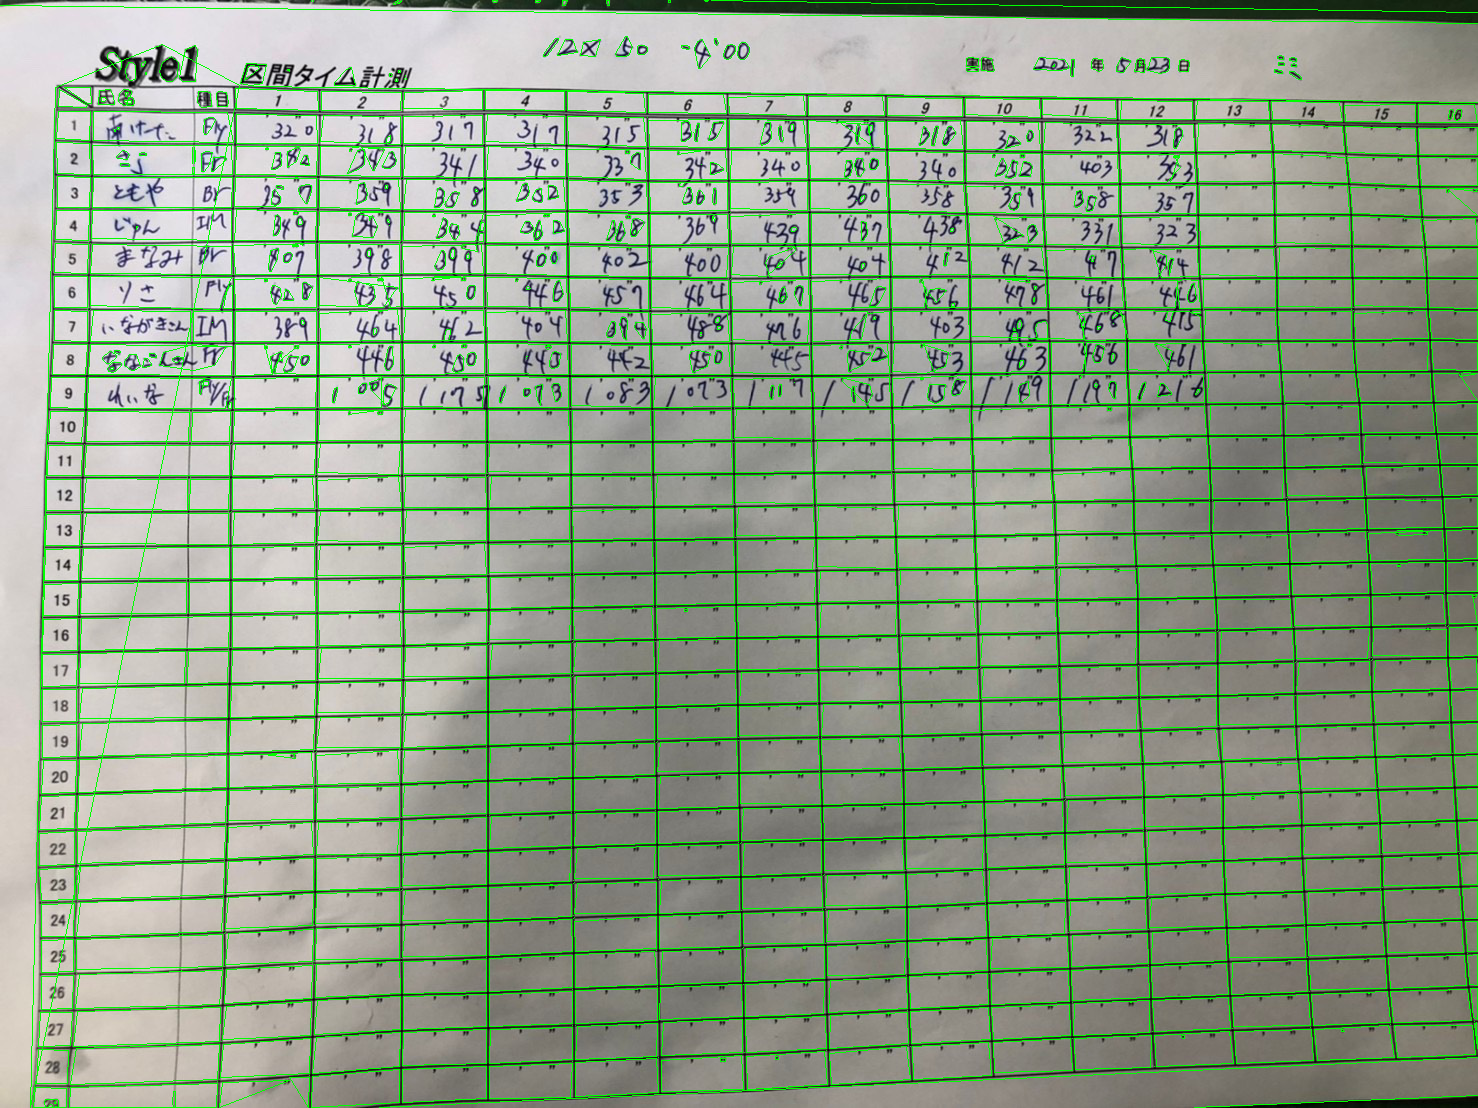 12× 50 -4'00
Style1 区間タイム計測 実施 2021 年 5月23日 ミミ
氏名 種目 1 2 3 4 5 6 7 8 9 10 11 12 13 14 15 16
1 Fly 32"0 31"8 31"7 31"7 31"5 31"5 31"9 31"9 31"8 32"0 32"2 31"8
2 さら Fr 34"2 34"3 34"1 34"0 33"7 34"2 34"0 34"0 34"0 35"2 40"3 35"3
3 ともや Br 35"7 35"9 35"8 35"2 35"3 36"1 35"9 36"0 35"8 35"9 35"8 35"7
4 じゅん IM 34"9 34"9 34"4 36"2 36"8 36"9 43"9 43"7 43"8 32"3 33"1 32"3
5 まなみ Br 40"7 39"8 39"9 40"0 40"2 40"0 40"4 40"4 41"2 41"2 41"7 41"4
6 りさ Fly 42"8 43"5 45"0 44"6 45"7 46"4 46"7 46"5 45"6 47"8 46"1 44"6
7 いながきさん IM 38"9 46"4 46"2 40"4 39"4 48"8 47"6 41"9 40"3 49"5 46"8 41"5
8 ななごんさん Fr 45"0 44"6 45"0 44"5 44"2 45"0 44"5 45"2 45"3 46"3 45"6 46"1
9 れいな Fly/Fr 1'00"5 1'07"5 1'07"3 1'08"3 1'07"3 1'11"7 1'14"5 1'15"8 1'14"9 1'19"7 1'21"6
10
11
12
13
14
15
16
17
18
19
20
21
22
23
24
25
26
27
28
29